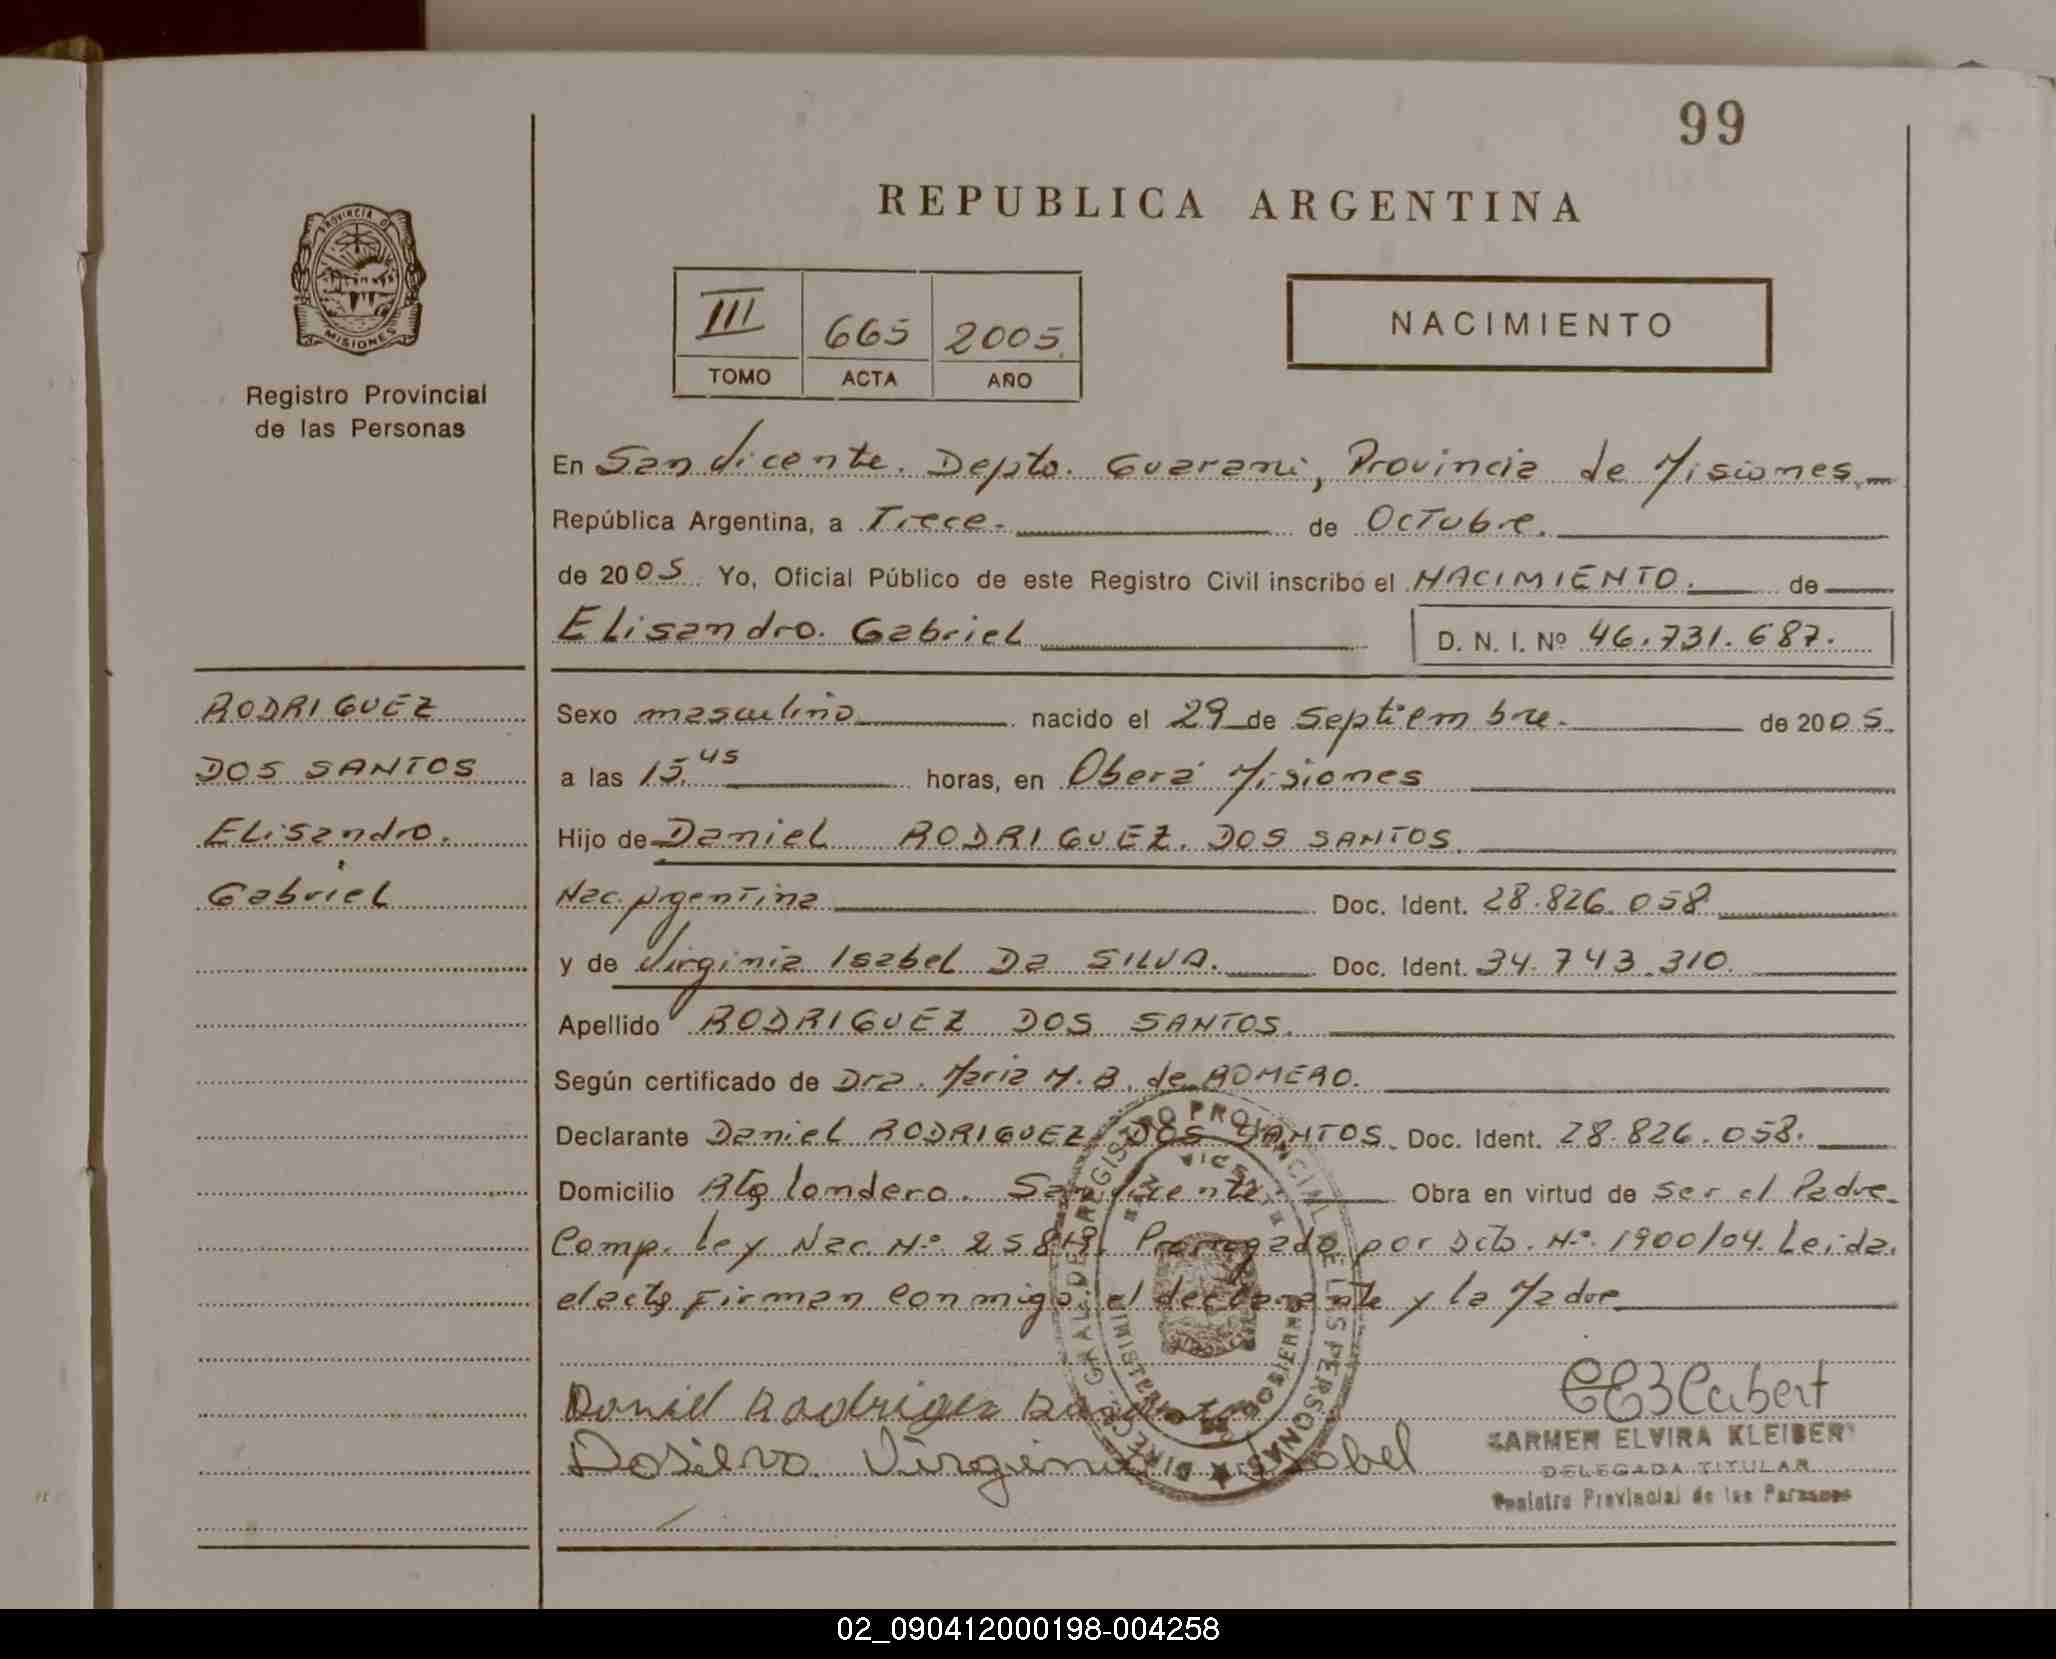 99
REPUBLICA ARGENTINA
PROVINCIA DE
MISIONES
Registro Provincial
de las Personas
III 665 2005
TOMO ACTA AÑO
NACIMIENTO
En San Vicente. Depto. Guarani, Provincia de Misiones
República Argentina, a Trece. de Octubre.
de 2005. Yo, Oficial Público de este Registro Civil inscribo el NACIMIENTO. de
Elisandro. Gabriel D. N. I. Nº 46.731.687.
RODRIGUEZ
DOS SANTOS
Elisandro.
Gabriel
Sexo masculino nacido el 29 de Septiembre. de 2005.
a las 15.45 horas, en Oberá Misiones
Hijo de Daniel RODRIGUEZ. DOS SANTOS.
Nac. Argentina Doc. Ident. 28.826.058
y de Virginia Isabel Da SILVA. Doc. Ident. 34.743.310.
Apellido RODRIGUEZ DOS SANTOS.
Según certificado de Dra. Maria M. B. de ROMERO.
Declarante Daniel RODRIGUEZ DOS SANTOS. Doc. Ident. 28.826.058.
Domicilio Aº londero. San Vicente. Obra en virtud de Ser el Padre
Comp. ley Nac Nº 25819. Prorrogado por Dcto. Nº 1900/04. Leida.
el acta Firman conmigo, el declarante y la Madre
Daniel Rodriguez
Dasilva Virginia Isabel
CARMEN ELVIRA KLEIBER
DELEGADA TITULAR
Registro Provincial de las Personas
DIREC. GRAL. DE REGISTRO PROVINCIAL DE LAS PERSONAS
SAN VICENTE
MINISTERIO DE GOBIERNO
02_090412000198-004258